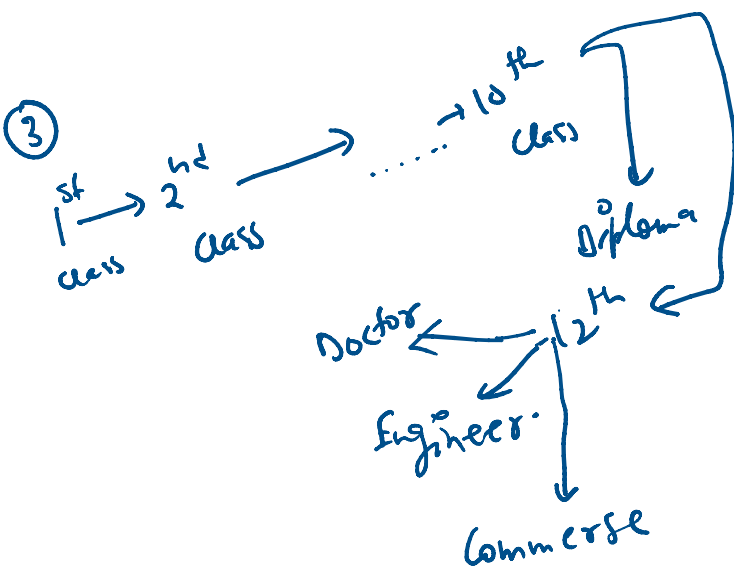 3
1st class
2nd class
...... 10th class
Diploma
12th
Doctor
Engineer.
Commerse